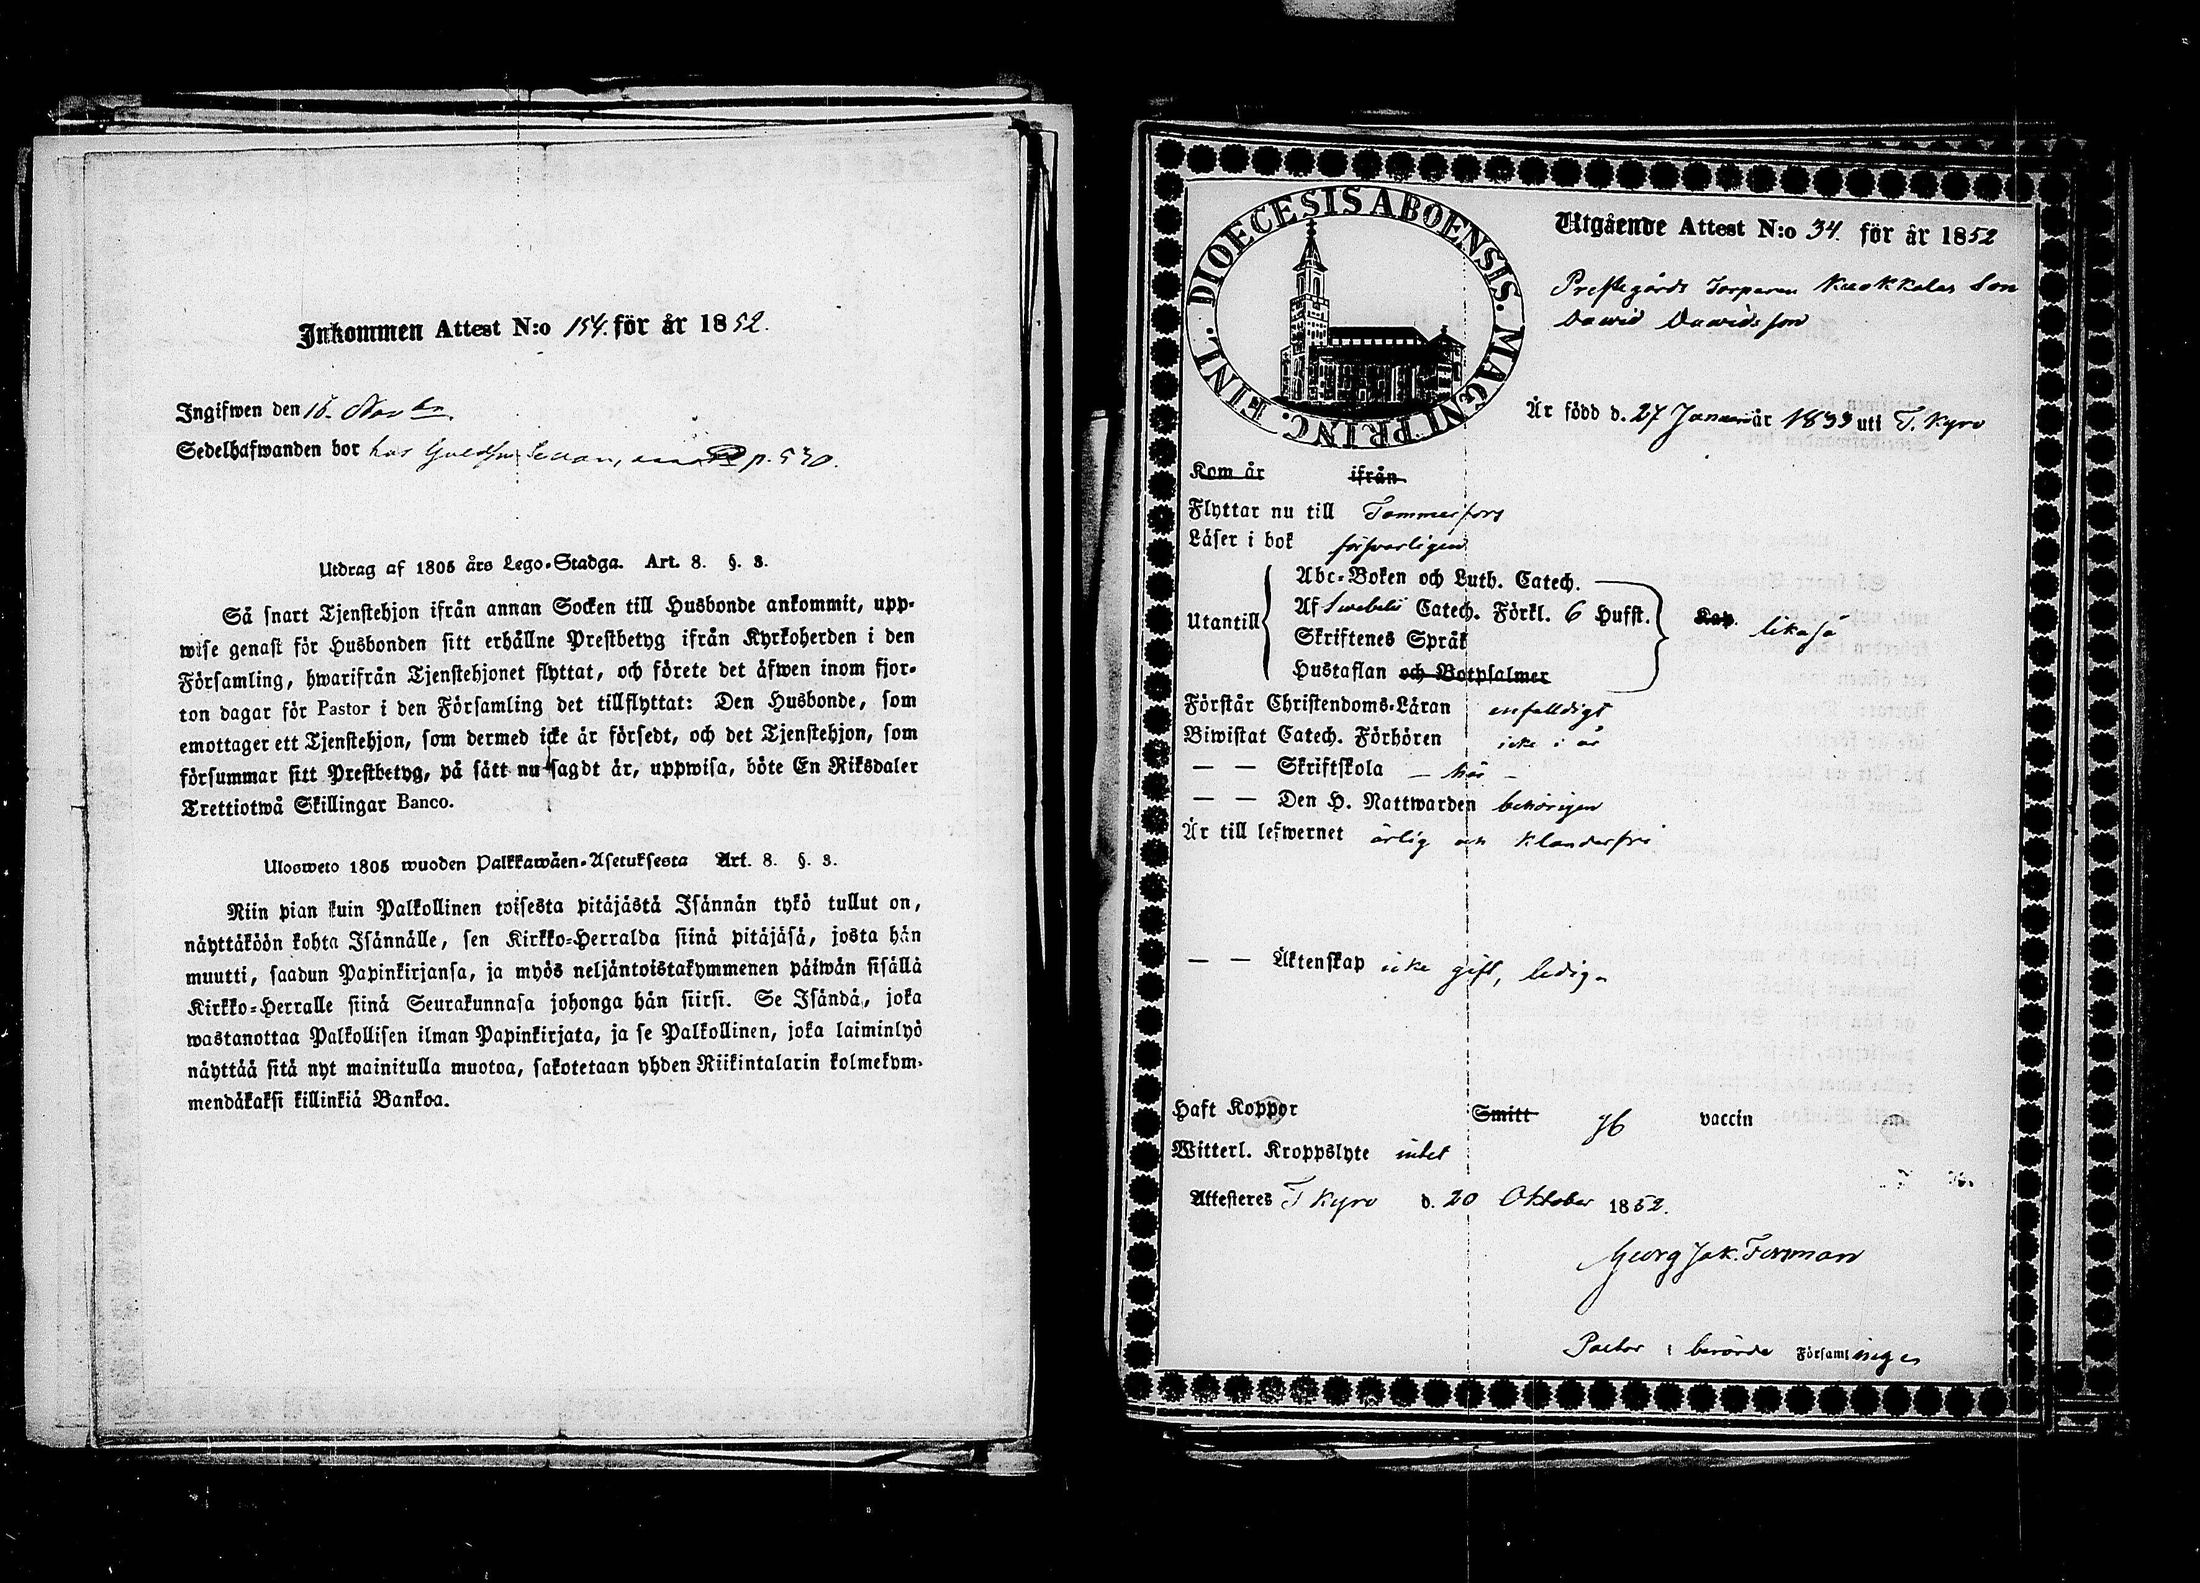 Inkommen Attest N:o 154. för år 1852.
Ingifwen den 15. Novbr.
Sedelhafwanden bor hos p. 530.
Utdrag af 1805 års Lego-Stadga. Art. 8. §. 3.
Så snart Tjenstehjon ifrån annan Socken till Husbonde ankommit, upp-
wise genast för Husbonden sitt erhållne Prestbetyg ifrån Kyrkoherden i den
Församling, hwarifrån Tjenstehjonet flyttat, och förete det äfwen inom fjor-
ton dagar för Pastor i den Församling det tillflyttat: Den Husbonde, som
emottager ett Tjenstehjon, som dermed icke är försedt, och det Tjenstehjon, som
försummar sitt Prestbetyg, på sätt nu sagdt är, uppwisa, böte En Riksdaler
Trettiotwå Skillingar Banco.
Ulosweto 1805 wuoden Palkkawäen-Asetuksesta Art. 8. §. 3.
Niin pian kuin Palkollinen toisesta pitäjästä Isännän tykö tullut on,
näyttäköön kohta Isännälle, sen Kirkko-Herralda siinä pitäjäsä, josta hän
muutti, saadun Papinkirjansa, ja myös neljäntoistakymmenen päiwän sisällä
Kirkko-Herralle siinä Seurakunnasa johonga hän siirsi. Se Isändä, joka
wastanottaa Palkollisen ilman Papinkirjata, ja se Palkollinen, joka laiminlyö
näyttää sitä nyt mainitulla muotoa, sakotetaan yhden Riikintalarin kolmekym-
mendäkaksi killinkiä Bankoa.
DIOECESIS ABOENSIS. MAGNI PRINC. FINL.
Utgående Attest N:o 34. för år 1852
Prestegårds Torparen Kaokkolas Son
Dawid Dawidsson
Är född d. 27 Januari år 1833 uti T. Kyro
Kom år ifrån
Flyttar nu till Tammerfors
Läser i bok försvarligen
Utantill
Abc-Boken och Luth. Catech.
Af Swebelii Catech. Förkl. 6 Hufst.
Skriftenes Språk
Hustaflan och Botpsalmer
Kap. likaså
Förstår Christendoms-Läran enfalldigt
Biwistat Catech. Förhören icke i år
— — Skriftskola — här —
— — Den H. Nattwarden behörigen
Är till lefwernet ärlig och klanderfri
— — Äktenskap icke gift, ledig.
Haft Koppor Smitt gb vaccin
Witterl. Kroppslyte intet
Attesteres T Kyro d. 20 Oktober 1852.
Georg Jak. Forsman
Pastor i berörde Församlingen